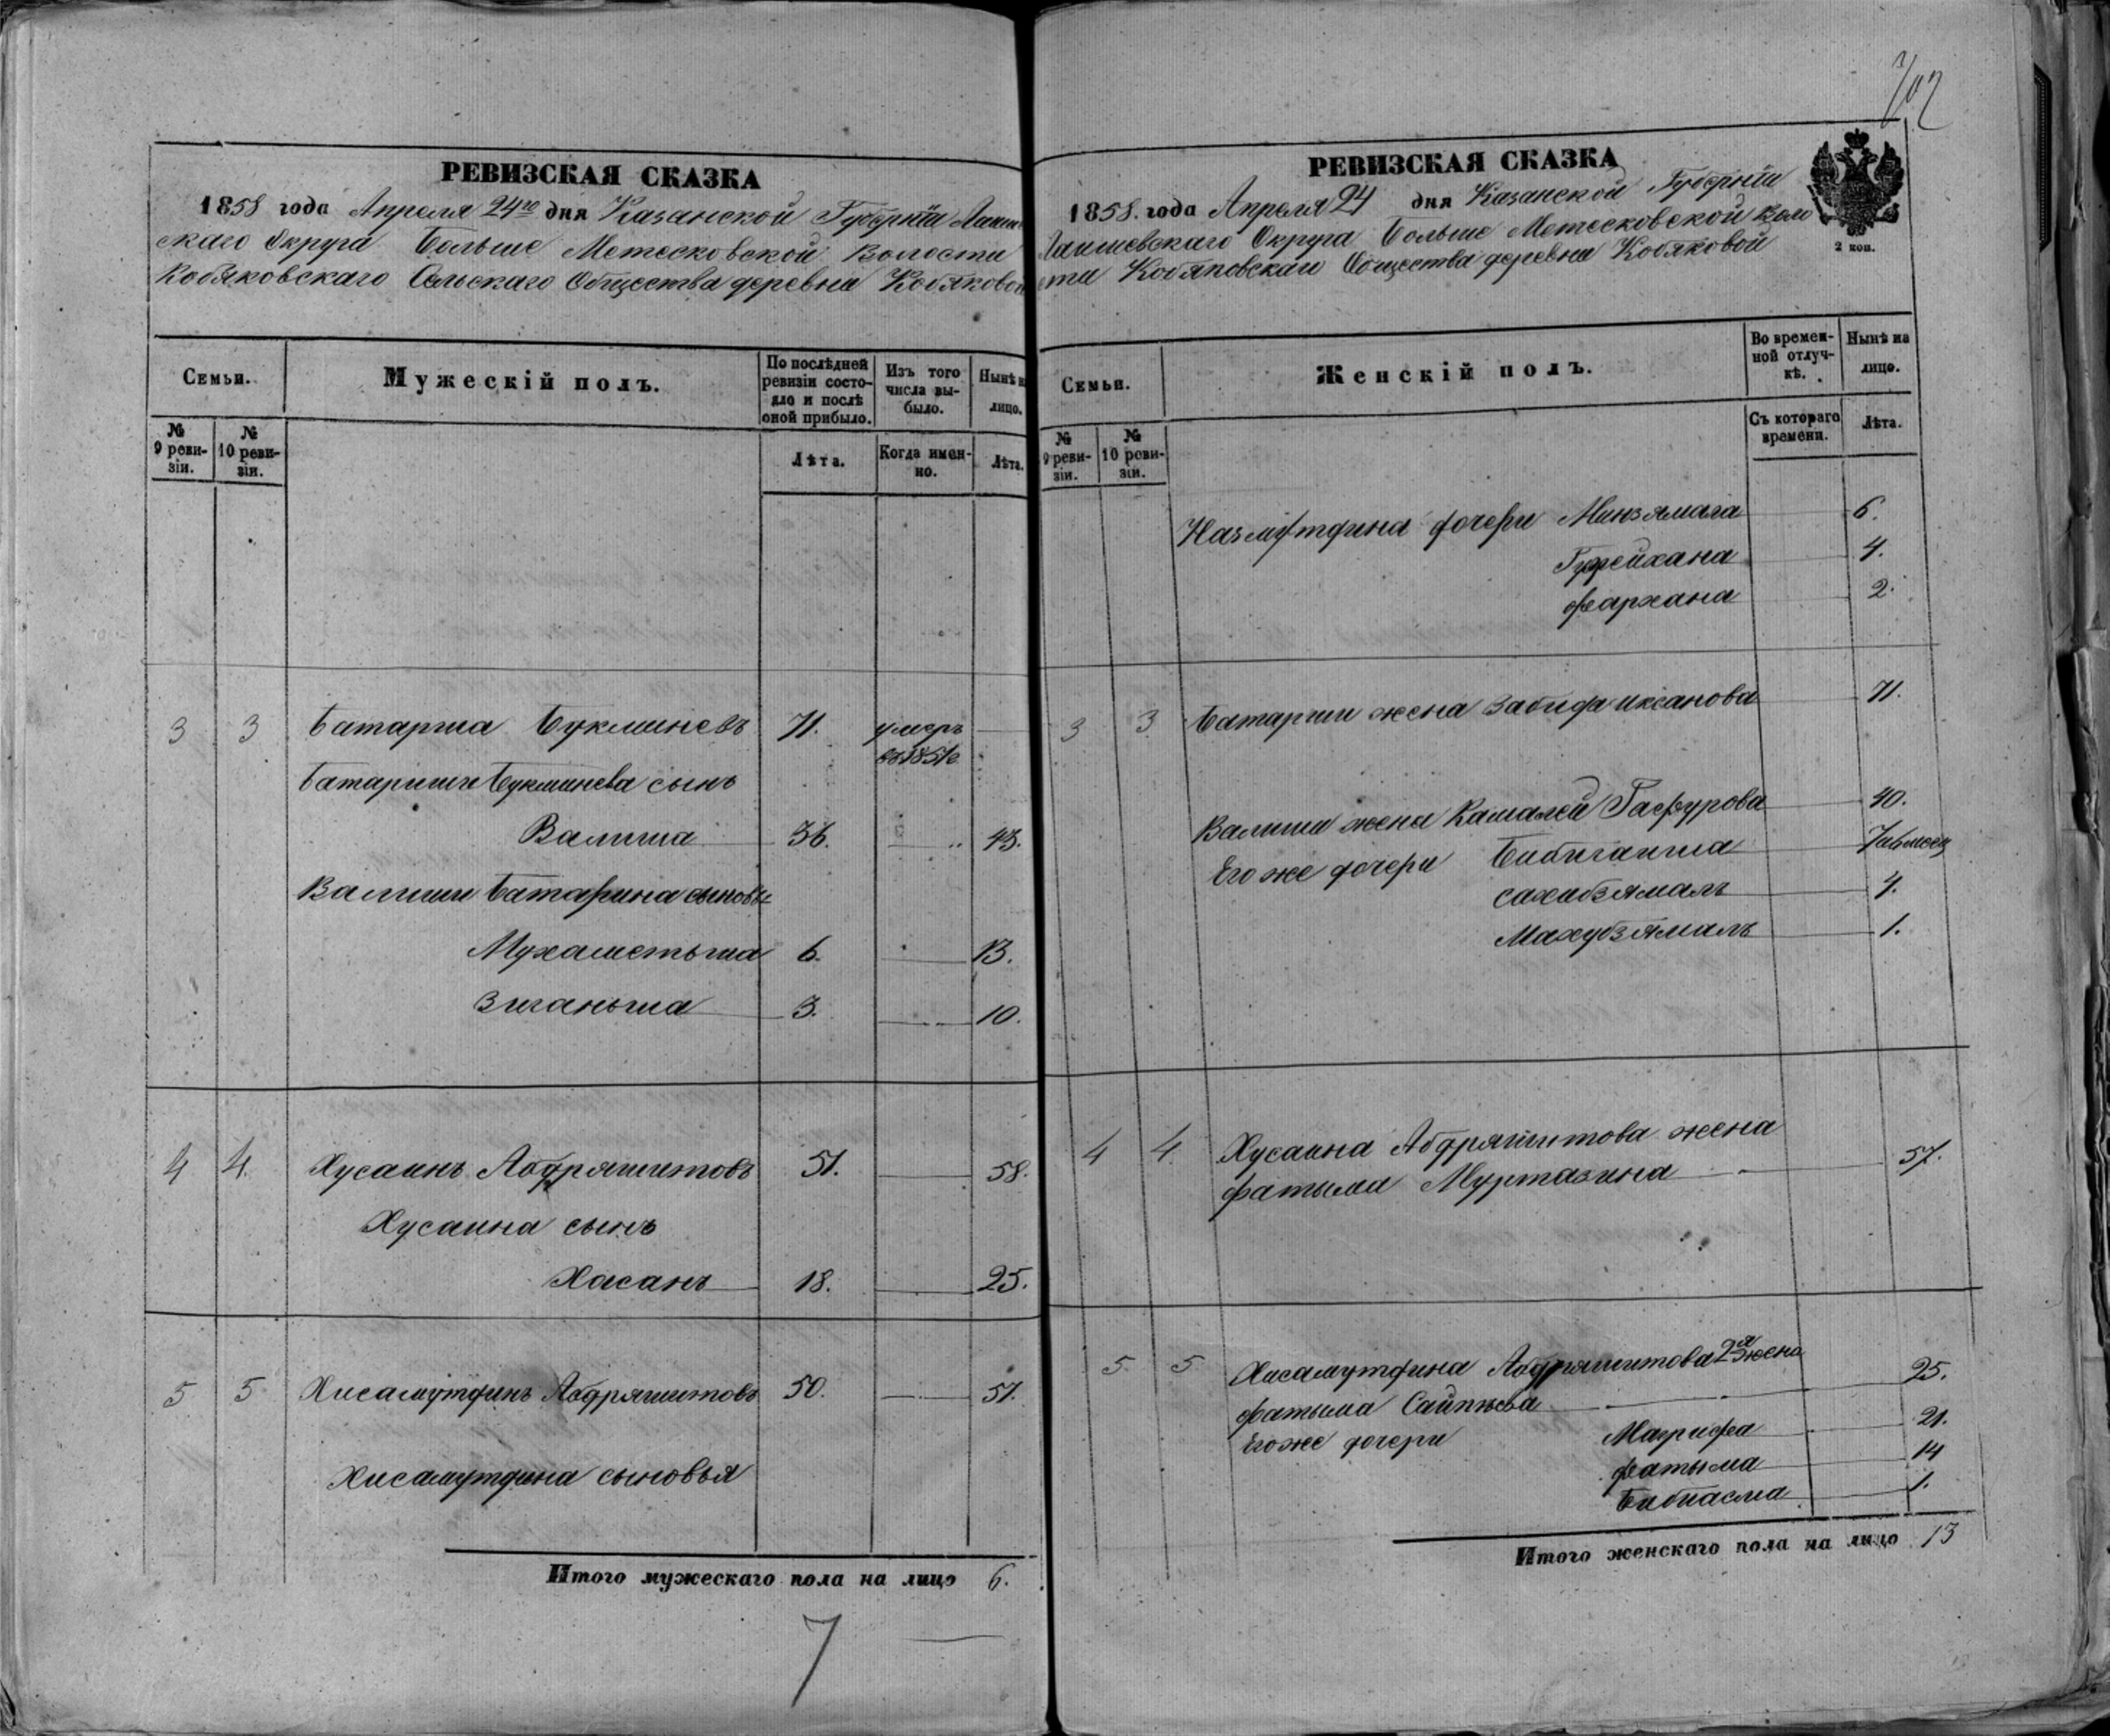 РЕВИЗСКАЯ СКАЗКА
1858 года Апреля 24го дня Казанской Губернiи Лаише
скаго Округа Больше Метесковской Волости
Кобяковскаго Сельскаго Общества деревни Кобяковой
Семьи.
Мужескiй полъ.
По послѣдней ревизiи состояло и послѣ оной прибыло.
Изъ того числа выбыло.
Нынѣ на лицо.
№ 9 ревизiи.
№ 10 ревизiи.
Лѣта.
Когда именно.
Лѣта.
3 3 Батарша Букминевъ 71. умеръ
въ 1851г
Батарши Букминева сынъ
Валиша 36. 43.
Валиши Батаршина сыновья
Мухаметьша 6. 13.
Зиганьша 3. 10.
4 4. Хусаинъ Абдряшитовъ 51. 58.
Хусаина сынъ
Хасанъ 18. 25.
5 5 Хисамутдинъ Абдряшитовъ 50. 57.
Хисамутдина сыновья
Итого мужескаго пола на лицо 6.
7
702
РЕВИЗСКАЯ СКАЗКА
1858. года Апреля 24 дня Казанской Губернiи
Лаишевскаго Округа Больше Метесковской Воло
сти Кобяковскаго Общества деревни Кобяковой
2 коп.
Семьи.
Женскiй полъ.
Во временной отлучкѣ.
Нынѣ на лицо.
№ 9 ревизiи.
№ 10 ревизiи.
Съ котораго времени.
Лѣта.
дочери 6.
4.
Фархана 2.
3 3 Батарши жена Забифа Иксанова 71.
Валиши жена Камалей Гафурова 40.
Его же дочери Бибигайша
Сахабзямалъ 4.
Махубзямалъ 1.
4 4. Хусаина Абдряшитова жена
Фатыма Муртазина 57.
5 5 Хисамутдина Абдряшитова 2я жена
Фатыма 25.
Его же дочери Магрифа 21.
Фатыма 14
Бибиасма 1.
Итого женскаго пола на лицо 13